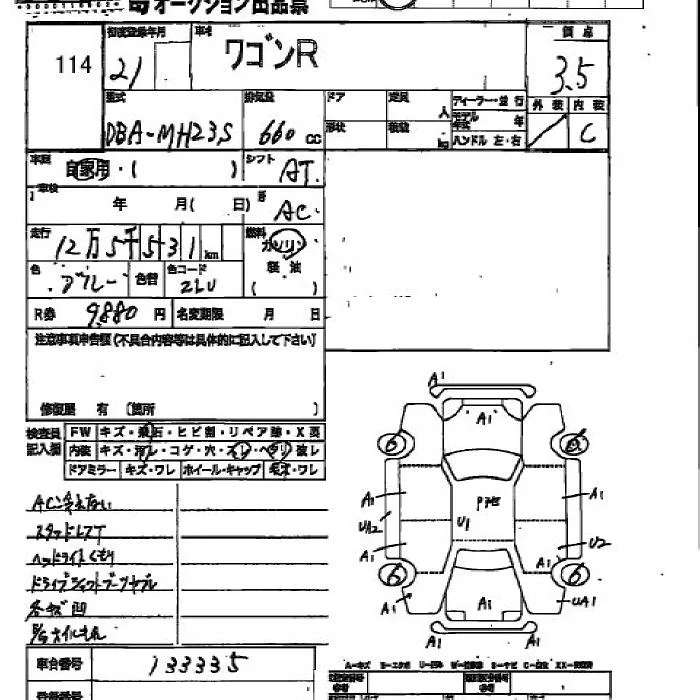 オークション出品票
114 初度登録年月 21 車名 ワゴンR 評価点 3.5
型式 DBA-MH23S 排気量 660 cc ドア 定員 人 ディーラー・並行
形状 積載 kg モデル年式 年 ハンドル 左・右
外装 内装 C
車歴 自家用・( ) シフト AT
車検 年 月( 日) AC
走行 12万5千531 km 燃料 ガソリン 軽油 ( )
色 ブルー 色替 色コード ZLU
R券 9,880 円 名変期限 月 日
注意事項申告欄(不具合内容等は具体的に記入して下さい)
修復歴 有 〔箇所 〕
検査員記入欄 FW キズ・飛石・ヒビ割・リペア跡・X要
内装 キズ・汚レ・コゲ・穴・スレ・ヘタリ・破レ
ドアミラー キズ・ワレ ホイール・キャップ キズ・ワレ
AC冷えない
スタッドレスT
ヘッドライトくもり
ドライブシャフトブーツヤブレ
各キズ凹
A1
A1
6
A1 A1
UA2 U1
A1 A1 U2
6 6
A1 A1 UA1
A1 A1
車台番号 133335
登録番号